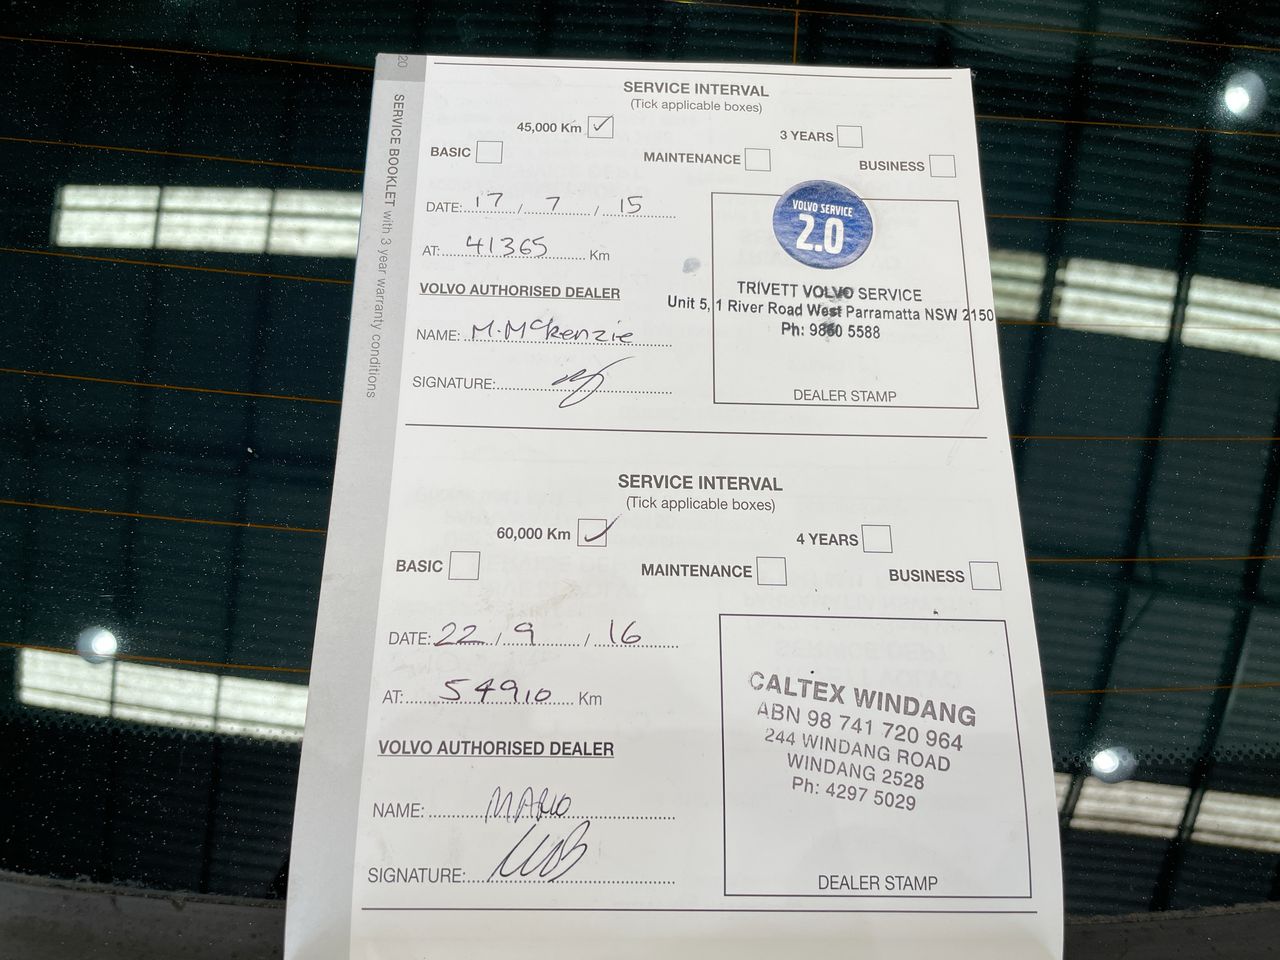 20
SERVICE BOOKLET with 3 year warranty conditions
SERVICE INTERVAL
(Tick applicable boxes)
45,000 Km ✓ 3 YEARS
BASIC MAINTENANCE BUSINESS
DATE: 17 / 7 / 15
AT: 41365 Km
VOLVO AUTHORISED DEALER
NAME: M. McKenzie
SIGNATURE:
VOLVO SERVICE
2.0
TRIVETT VOLVO SERVICE
Unit 5, 1 River Road West Parramatta NSW 2150
Ph: 9860 5588
DEALER STAMP
SERVICE INTERVAL
(Tick applicable boxes)
60,000 Km ✓ 4 YEARS
BASIC MAINTENANCE BUSINESS
DATE: 22 / 9 / 16
AT: 54910 Km
VOLVO AUTHORISED DEALER
NAME:
SIGNATURE:
CALTEX WINDANG
ABN 98 741 720 964
244 WINDANG ROAD
WINDANG 2528
Ph: 4297 5029
DEALER STAMP